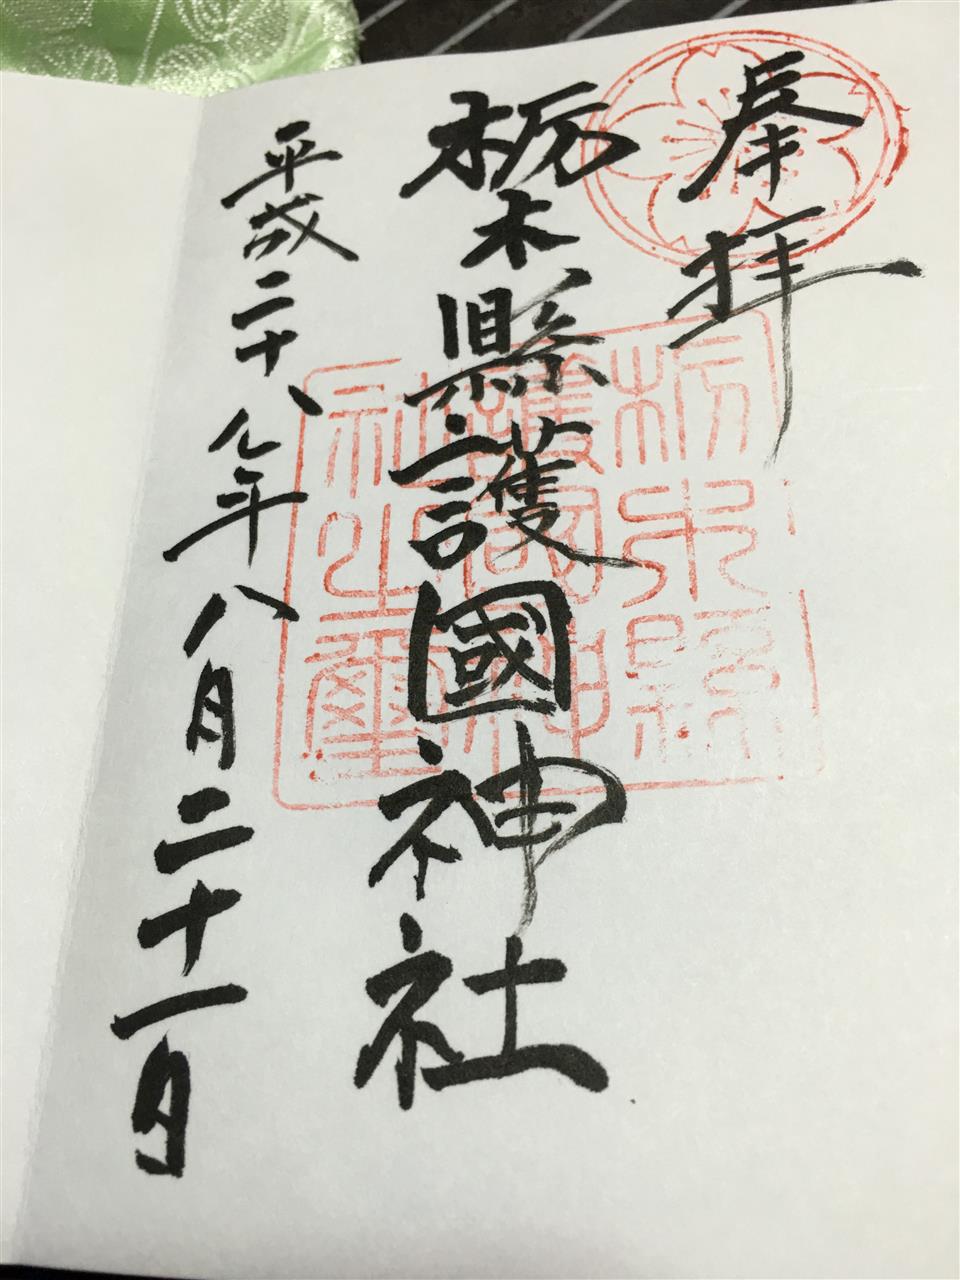 奉拝
栃木縣護國神社
平成二十八年八月二十一日
栃木縣
護國神
社之璽